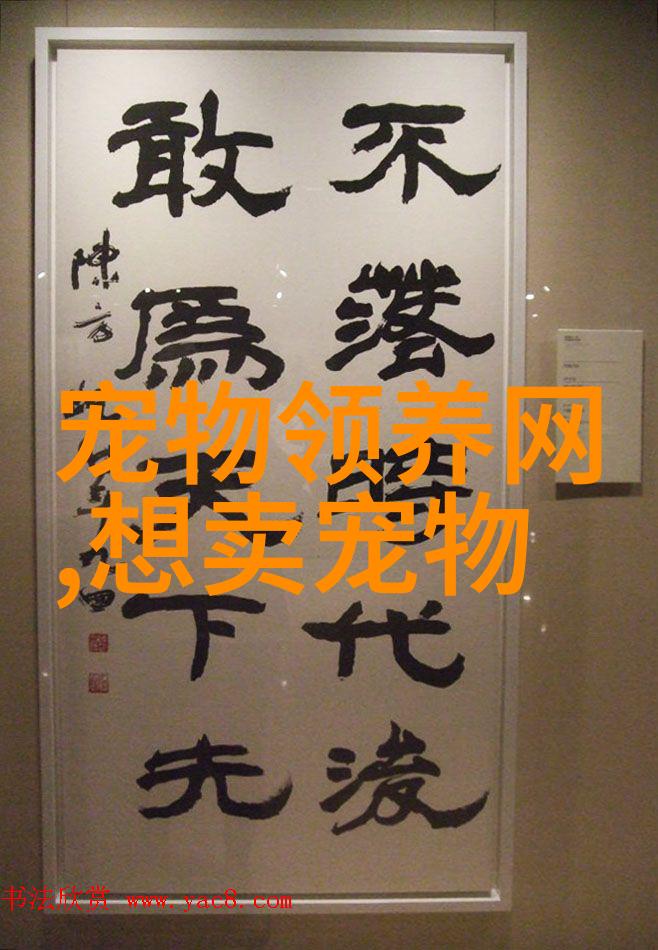 不落時代後
敢爲天下先
宠物领养网
,想卖宠物
书法欣赏 www.yac8.com